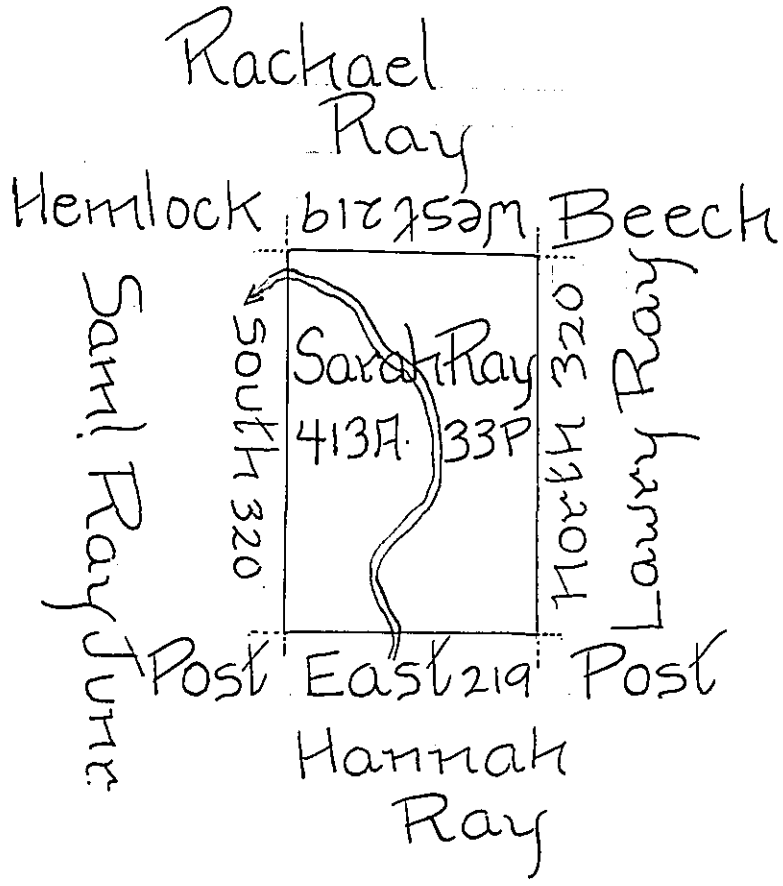 Rachael
Ray
Hemlock West 219 Beech
Saml. Ray Junr.
South 320
Sarah Ray
413A. 33P
North 320
Lawry Ray
Post East 219 Post
Hannah
Ray